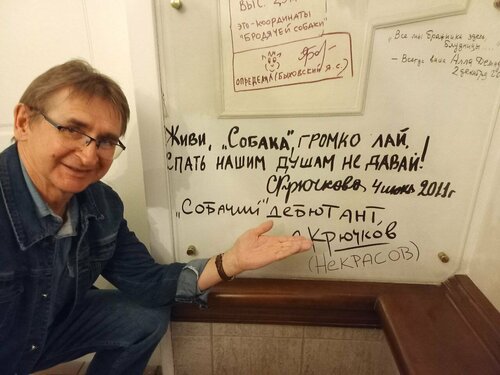 ЭТО-КООРДИНАТЫ
"БРОДЯЧЕЙ СОБАКИ"
ОПРЕДЕЛИЛ (БЫКОВСКИЙ Я.С.)
"Все мы бражники здесь,
блудницы...
— Всегда ваша Алла
2 декабря
Живи, „Собака", громко лай,
Спать нашим душам не давай!
СКрючкова, 4 июнь 2011г
„СОБАЧИЙ" ДЕБЮТАНТ
с Крючков
(НЕКРАСОВ)